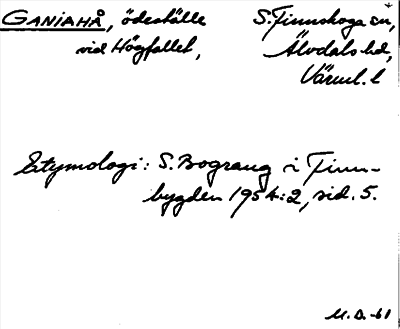 GANIAHÅ, ödeställe S. Finnskoga sn,
vid Högfallet, Älvdals hd,
Värml. l
Etymologi: S. Bograng i Finn-
bygden 1954:2, sid. 5.
M.D.-61